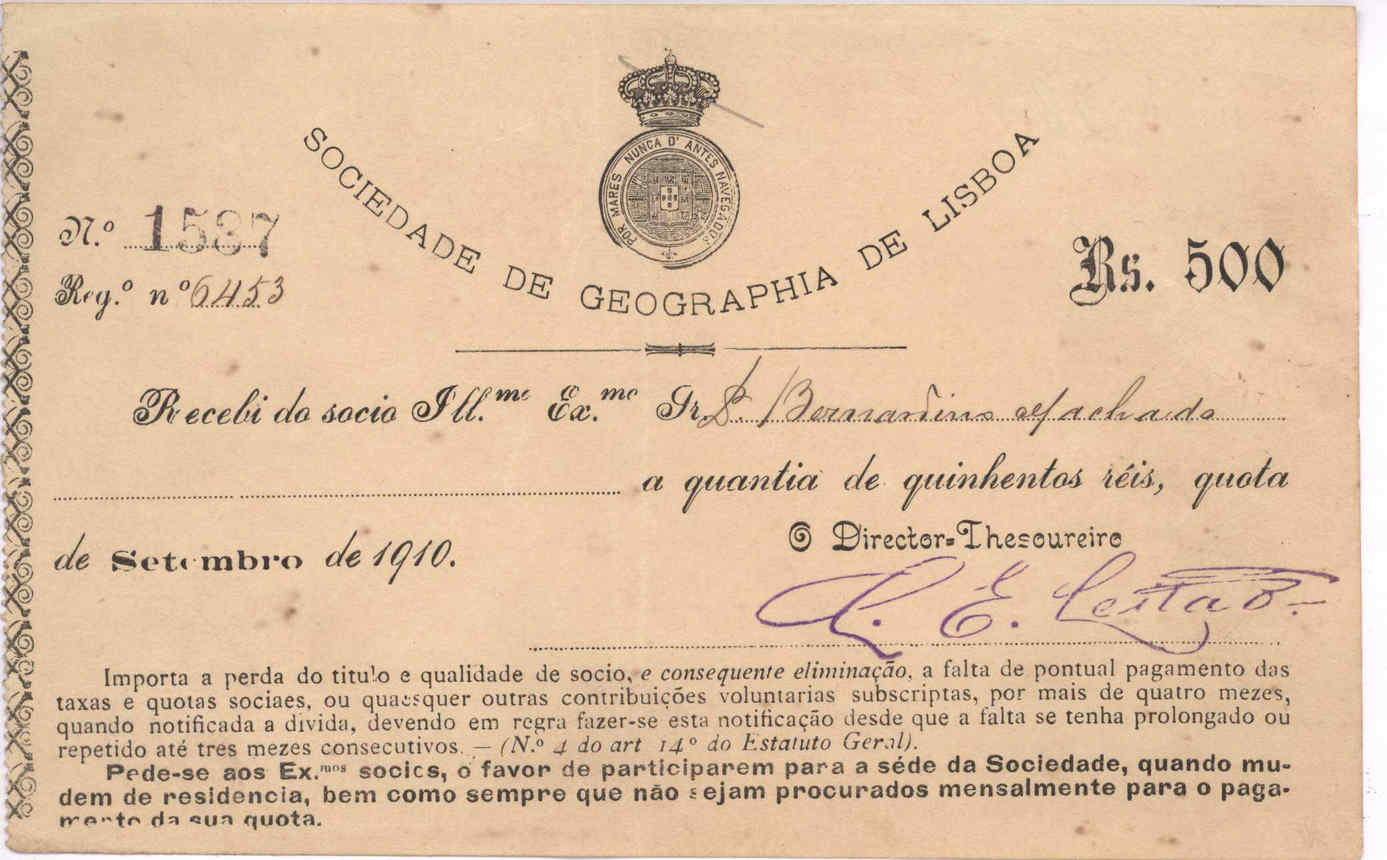 POR MARES NUNCA D'ANTES NAVEGADOS
SOCIEDADE DE GEOGRAPHIA DE LISBOA
N.º 1537
Reg.º nº 6453
Rs. 500
Recebi do socio Ill.mo Ex.mo Sr. Bernardino Machado
a quantia de quinhentos réis, quota
de Setembro de 1910.
O Director-Thesoureiro
C. E. Leitão
Importa a perda do titulo e qualidade de socio, e consequente eliminação, a falta de pontual pagamento das
taxas e quotas sociaes, ou quaesquer outras contribuições voluntarias subscriptas, por mais de quatro mezes,
quando notificada a divida, devendo em regra fazer-se esta notificação desde que a falta se tenha prolongado ou
repetido até tres mezes consecutivos. — (N.º 4 do art 14º do Estatuto Geral).
Pede-se aos Ex.mos socios, o favor de participarem para a séde da Sociedade, quando mu-
dem de residencia, bem como sempre que não sejam procurados mensalmente para o paga-
mento da sua quota.